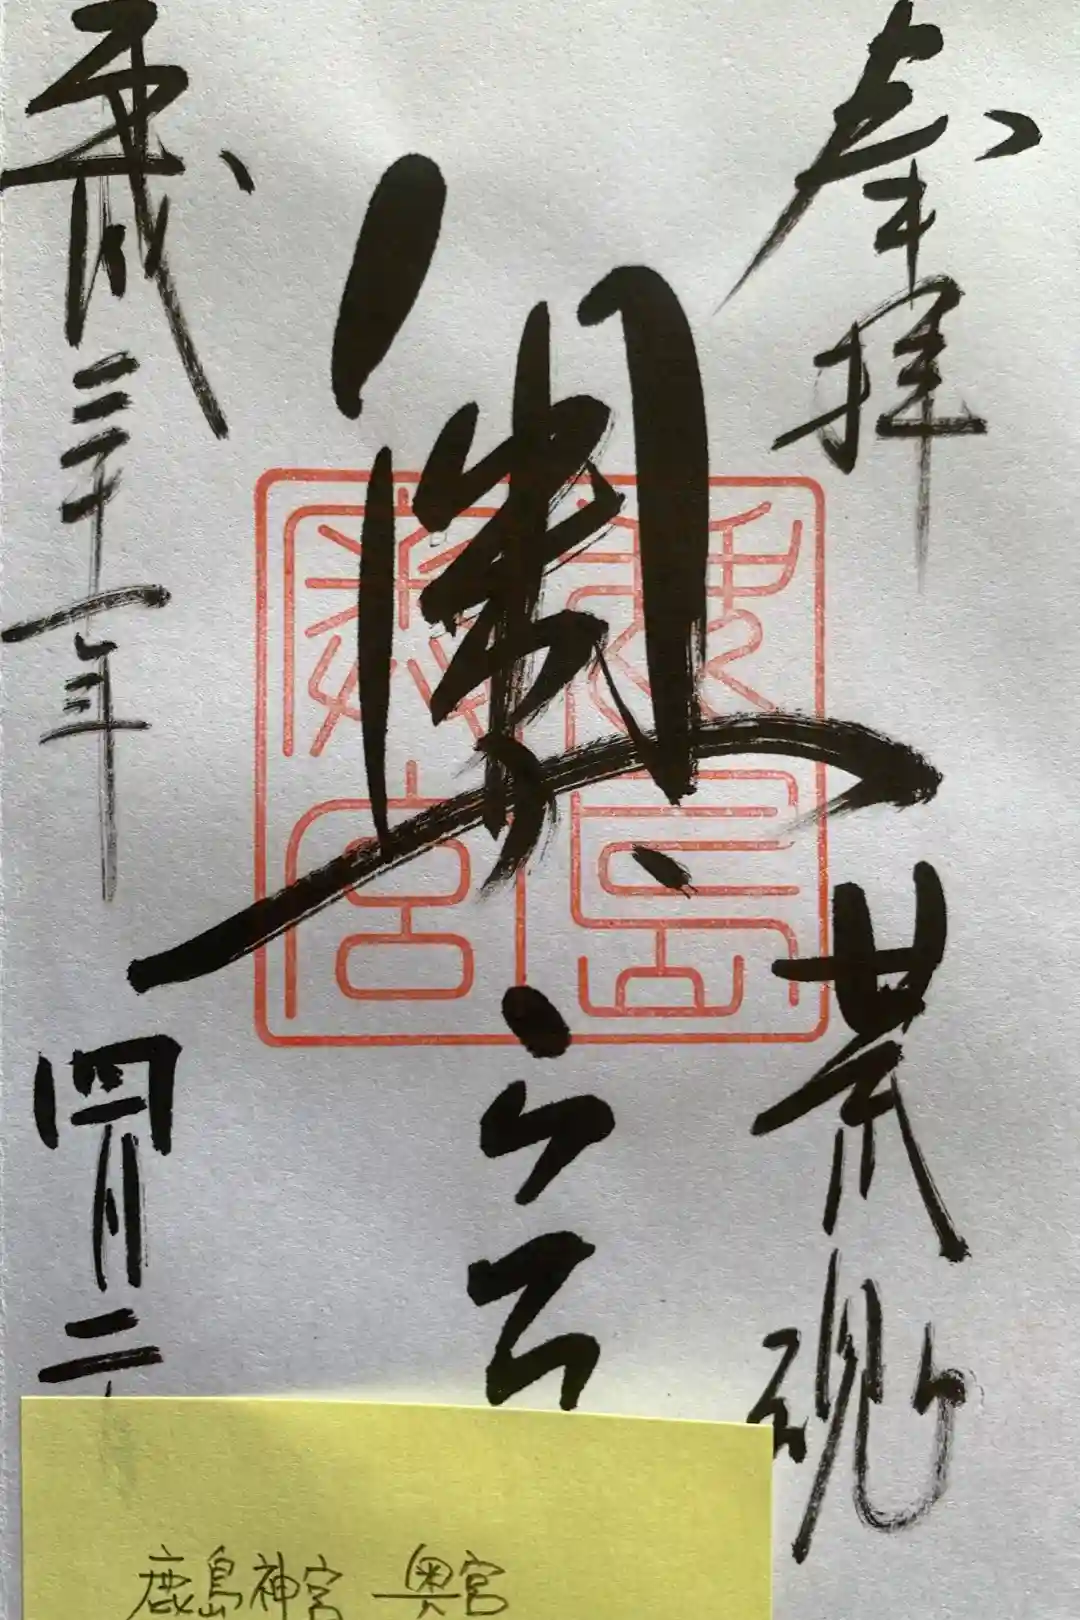 奉拝
荒魂
奥宮
鹿島神宮
平成三十一年四月二
鹿島神宮 奥宮